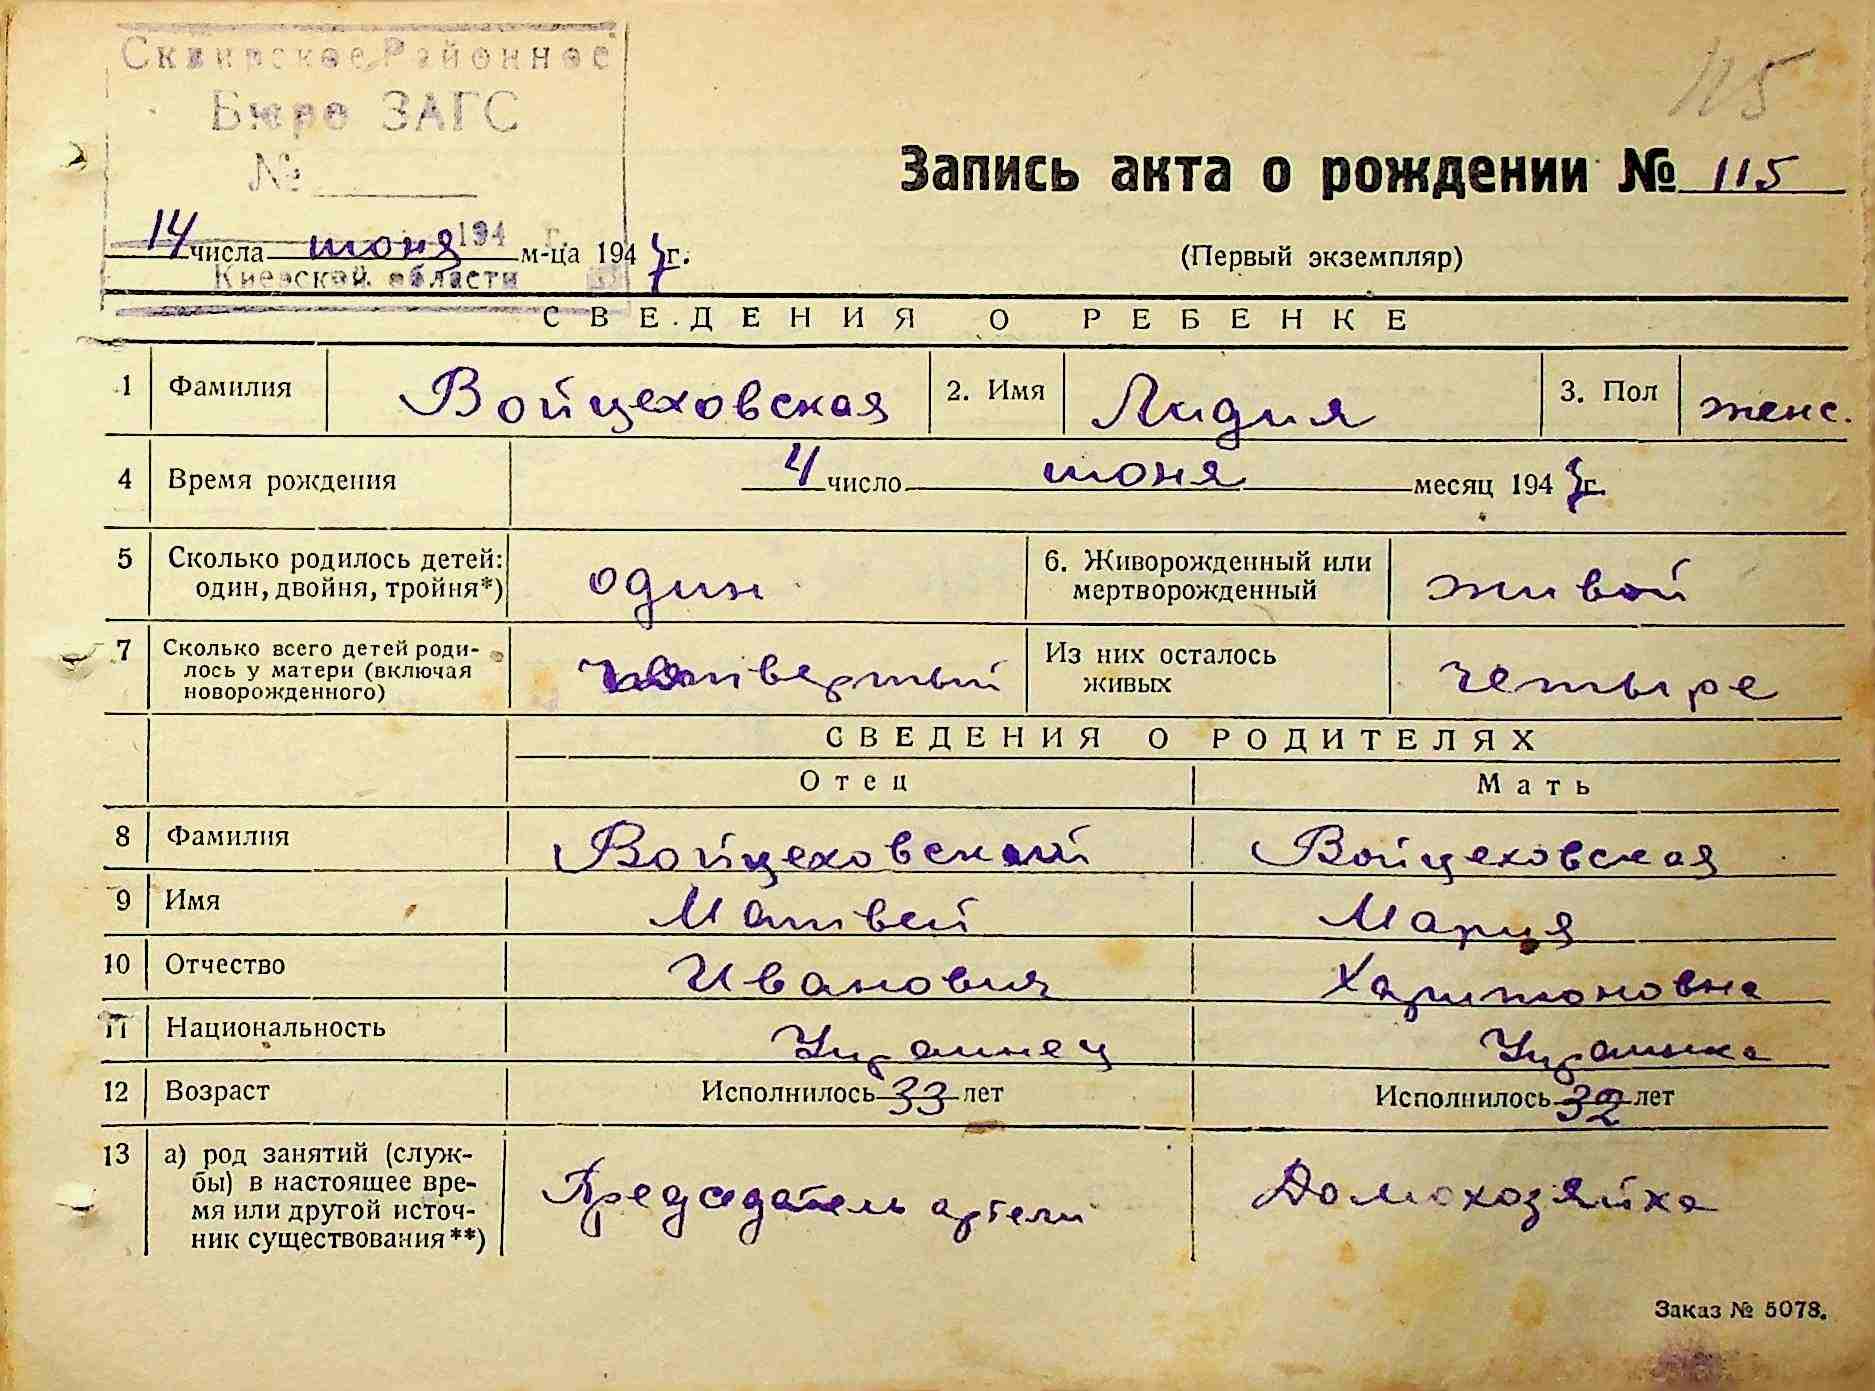 115
Сквирское Районное
Бюро ЗАГС
№
194 г.
Киевской области
Запись акта о рождении № 115
14 числа июня м-ца 1947 г.
(Первый экземпляр)
СВЕДЕНИЯ О РЕБЕНКЕ
1 Фамилия Войцеховская 2. Имя Лидия 3. Пол женс.
4 Время рождения 4 число июня месяц 1947 г.
5 Сколько родилось детей: один 6. Живорожденный или живой
один, двойня, тройня*) мертворожденный
7 Сколько всего детей роди- четвертый Из них осталось четыре
лось у матери (включая живых
новорожденного)
СВЕДЕНИЯ О РОДИТЕЛЯХ
Отец Мать
8 Фамилия Войцеховский Войцеховская
9 Имя Матвей Мария
10 Отчество Иванович Харитоновна
11 Национальность Украинец Украинка
12 Возраст Исполнилось 33 лет Исполнилось 32 лет
13 а) род занятий (служ- Председатель артели Домохозяйка
бы) в настоящее вре-
мя или другой источ-
ник существования**)
Заказ № 5078.